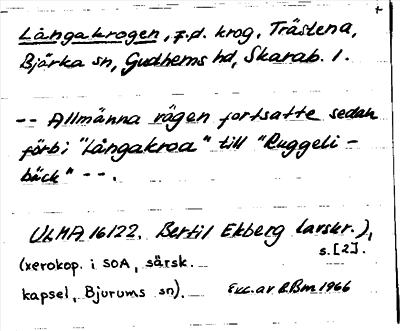 Långakrogen, f.d. krog, Trästena,
Bjärka sn, Gudhems hd, Skarab. l.
-- Allmänna vägen fortsatte sedan
förbi "Långakroa" till "Ruggeli-
bäck" --.
ULMA 16122. Bertil Ekberg (avskr.),
s. [2].
(xerokop. i SOA, särsk.
kapsel, Bjurums sn).
Exc. av B.Bm 1966